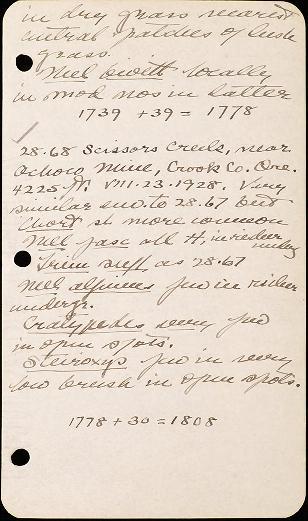 in dry grass nearest
central patches of lush
grass.
Mel bivitt locally
in mod nos in latter
1739 + 39 = 1778
28.68 Scissors Creek, near
Ochoco Mine, Crook Co. Ore.
4225 ft. VIII.23.1928. Very
similar env to 28.67 but
Chort st more common
Mel fasc all H, in richer
Trim suff as 28.67
Mel alpinus few in richer
undergr.
Cratypedes very few
in open spots.
Steiroxys few in very
low brush in open spots.
1778 + 30 = 1808